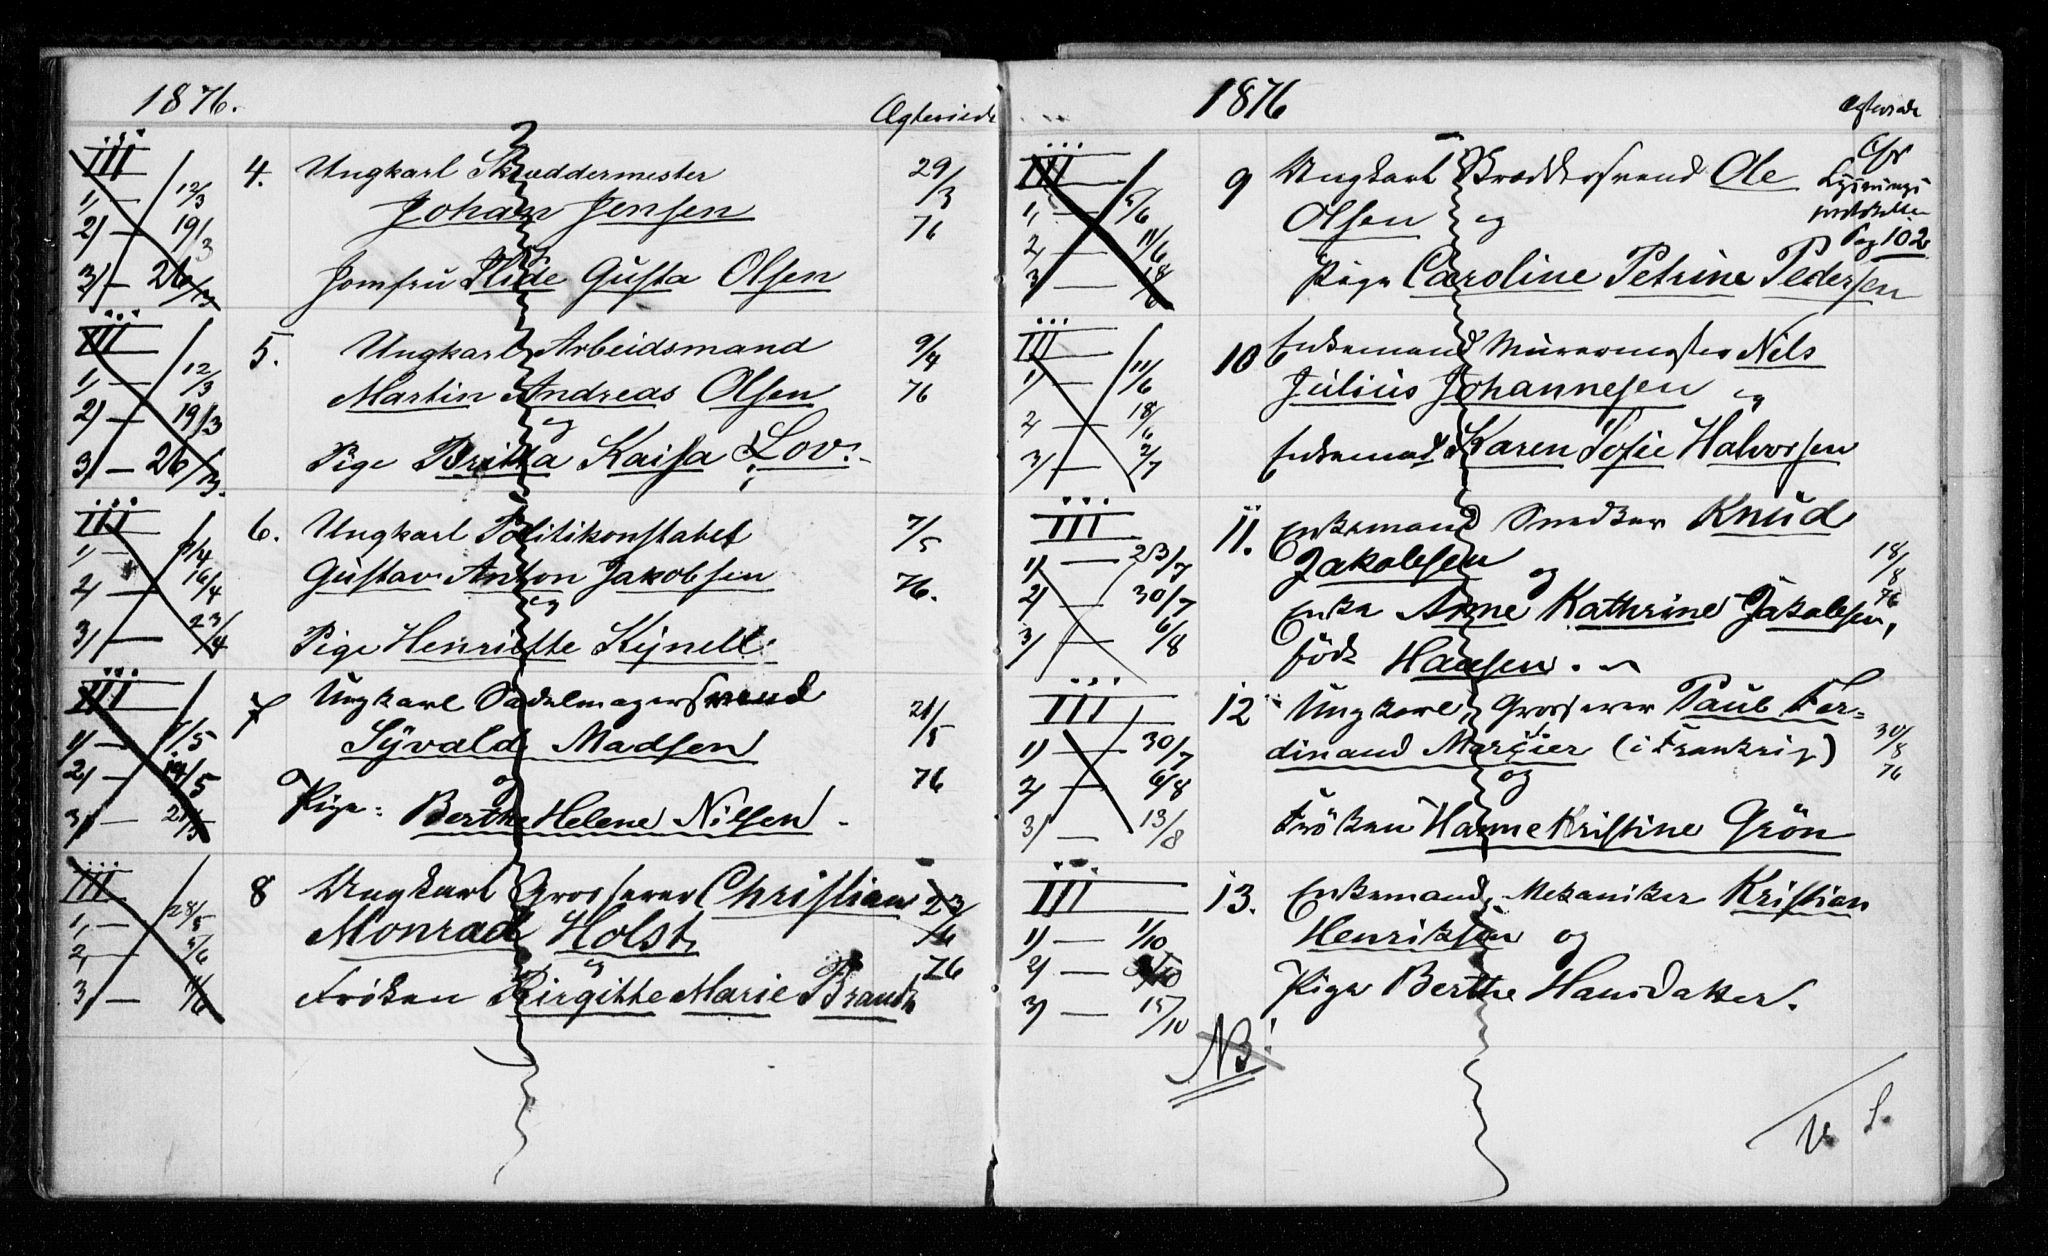 1876.
Ægteviede
III
4. Ungkarl Skræddermester 29/3
1) — 12/3
Johan Jensen 76
2) — 19/3
og
3) — 26/3
Jomfru Ilide Gusta Olsen
III
5. Ungkarl Arbeidsmand 9/4
1) — 12/3
Martin Andreas Olsen 76
2) — 19/3
og
3) — 26/3.
Pige Britta Kaisa Lov.
III
6. Ungkarl Politikonstabel 7/5
1) — 9/4
2) — 16/4
Gustav Anton Jakobsen 76.
og
3) — 23/4
Pige Henriette Kijnell.
III
7 Ungkarl Sadelmagersvend 21/5
1) — 7/5
Syvald Madsen
2) — 14/5
og 76
3) — 21/5
Pige: Berthe Helene Nilsen -
III
8 Ungkarl Grosserer Christian 23/6
1, — 28/5
Monrad Holst
2, — 5/6
og 76
3 — 11/6
Frøken Birgitte Marie Brandt
1876
Ægteviede
III
9 Ungkarl Ole
Cfr Lysnings
protokollen
Pag 102
1, — 5/6
Olsen og
2) — 11/6
3 — 18/6
Pige Caroline Petrine Pedersen
III
10 Enkemand Murermester Nils
1) — 11/6
Julius Johannesen og
2 — 18/6
3) — 2/7
Karen Sofie Halvorsen
III
11. Enkemand Snedker Knud
1) — 23/7
Jakobsen og 18/8 76
2) — 30/7
Enke Anne Kathrine Jakobsen,
3) — 6/8
född Hansen.
III
12 Ungkarl, Grosserer Paul Fer=
1) — 30/7
dinand Marcier (i Frankrig) 30/8 76
2) — 6/8
og
3) — 13/8
Fröken Hanne Kristine Grön
III
13. Enkemand, Mekaniker Kristian
1) — 1/10
Henriksen og
2) — 8/10
Pige Berthe Hansdatter.
3) — 15/10
NB!